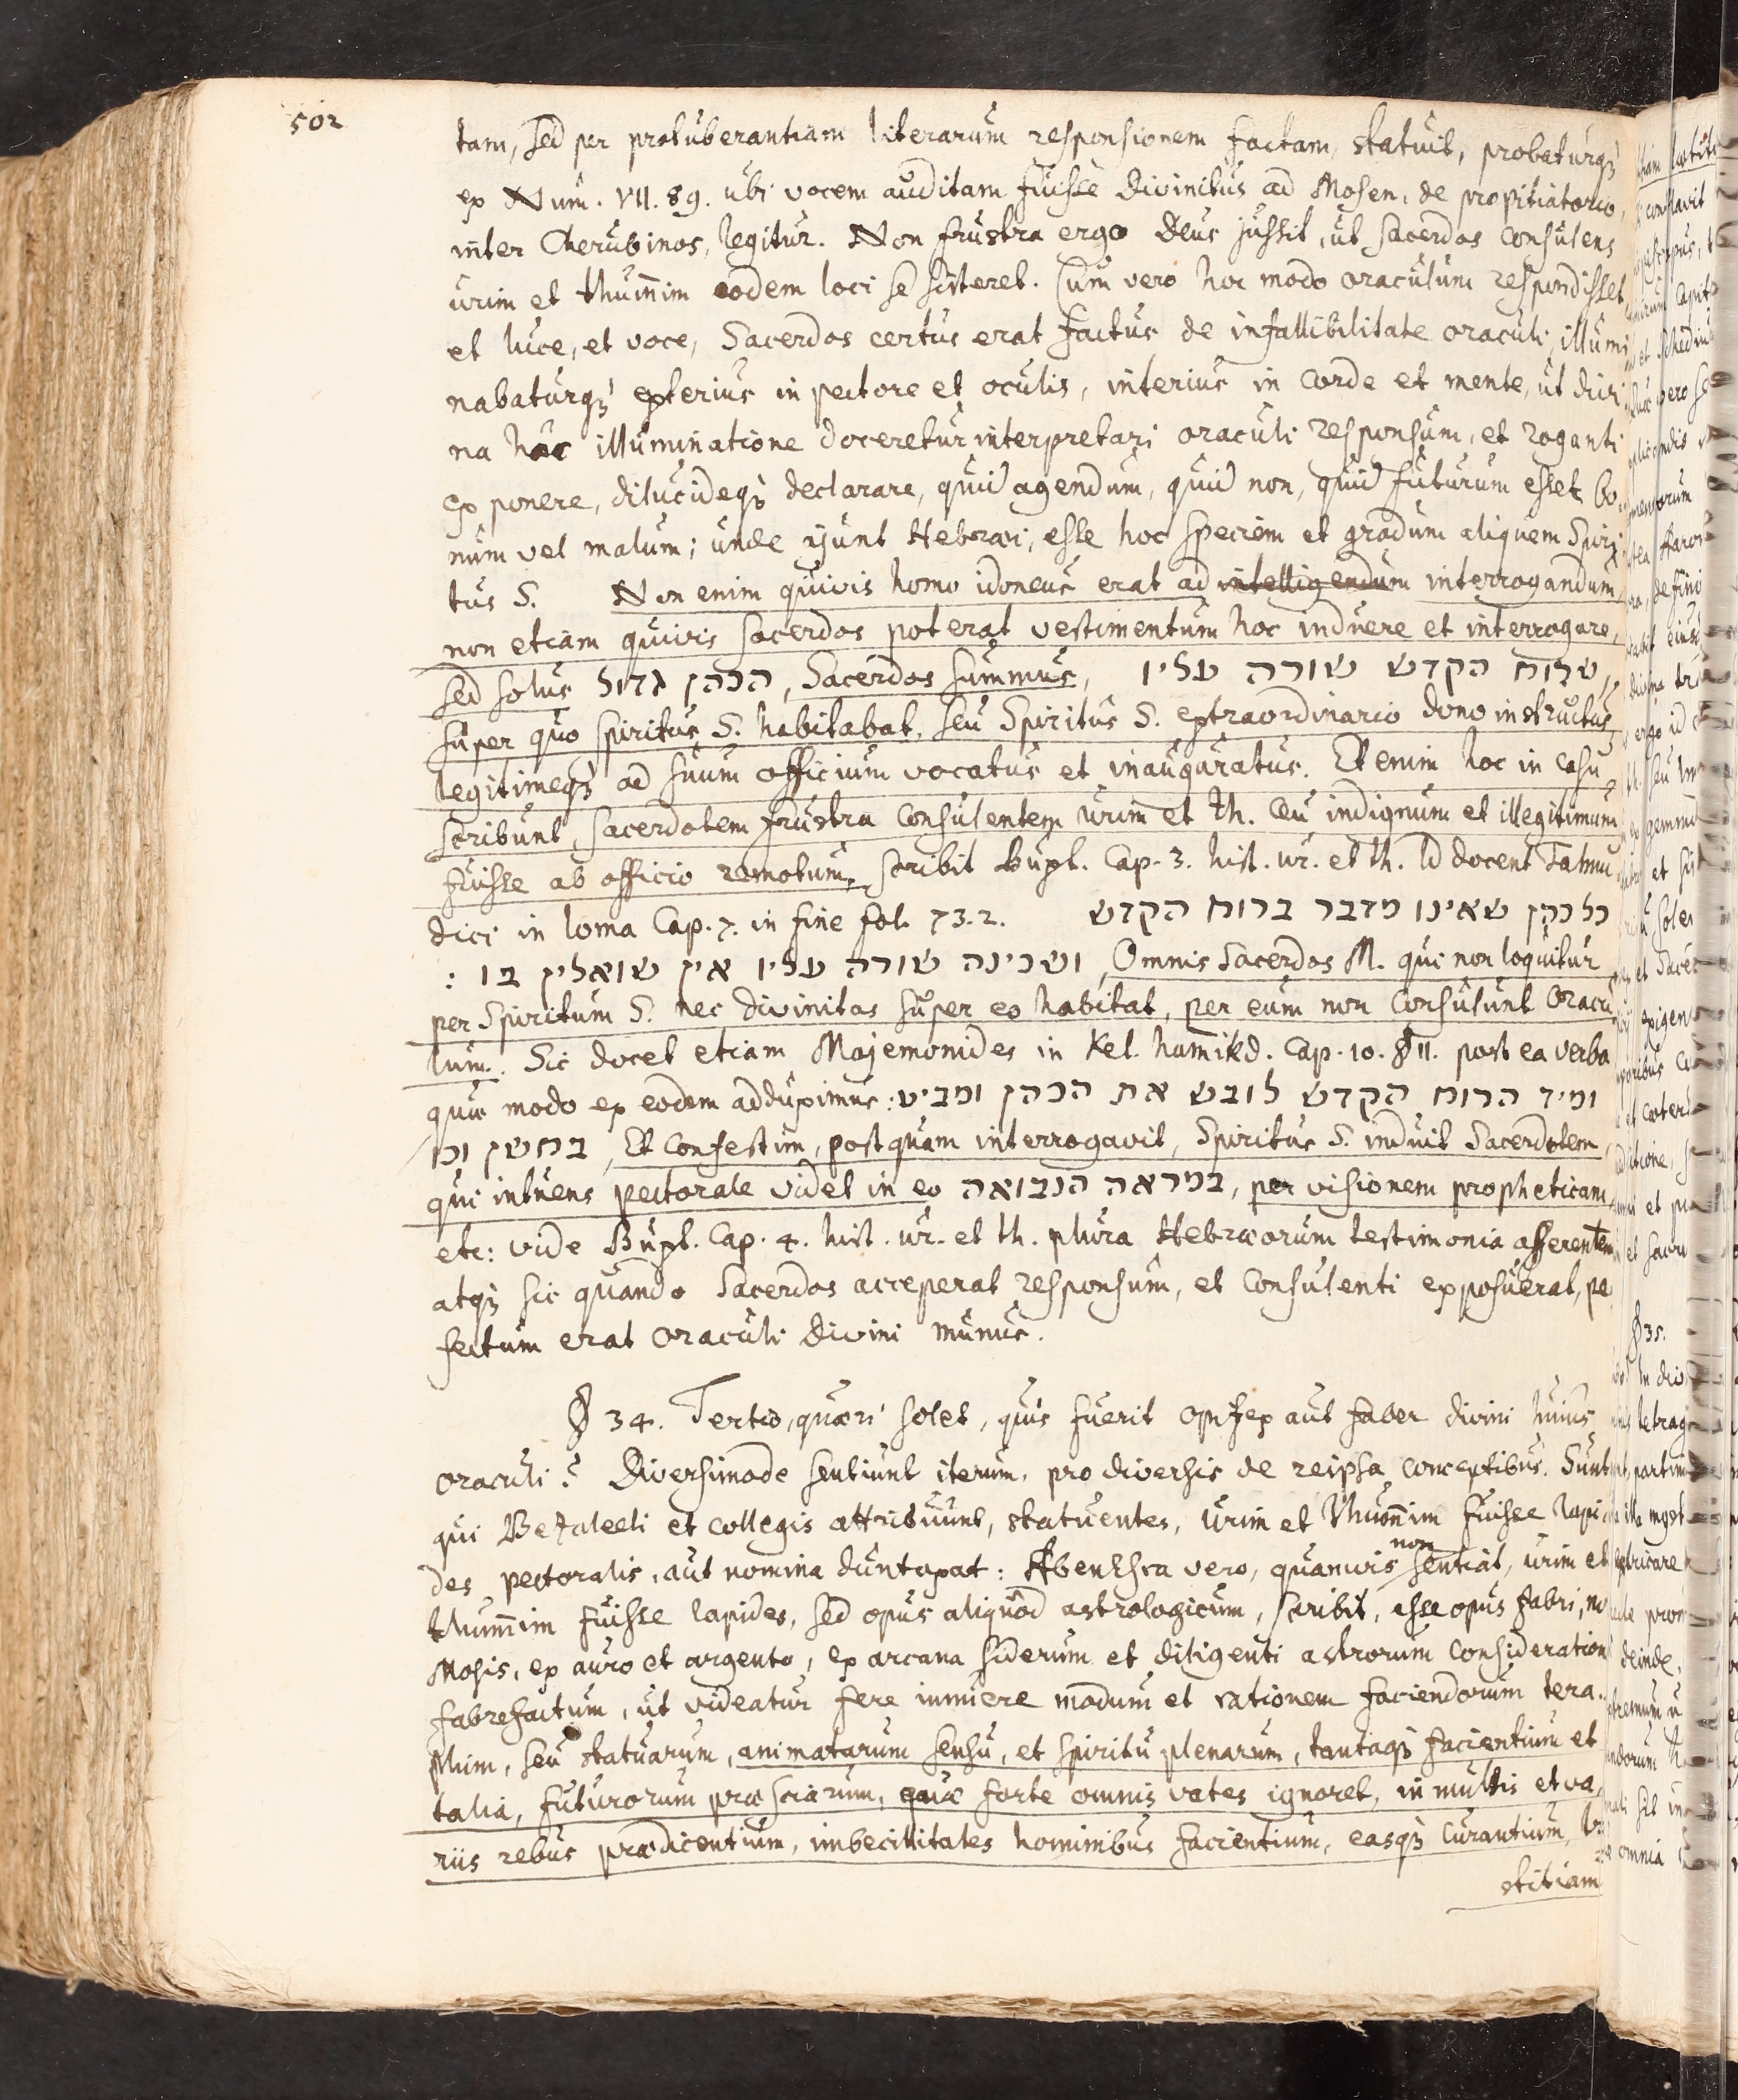 502
tam, sed per protuberantiam literarum responsionem factam, statuit, probaturqꝫ
ex Num. VII. 89. ubi vocem auditam fuisse divinitus ad Mosen, de propitiatorio,
inter Cherubinos, legitur. Non frustra ergo Deus jussit, ut sacerdos consulens
urim et thum̄im eodem loci se sisteret. Cum vero hoc modo oraculum respondisset
et luce, et voce, Sacerdos certus erat factus de infallibilitate oraculi, illumi
nabaturqꝫ exterius in pectore et oculis, interius in corde et mente, ut divi
na hac illuminatione doceretur interpretari oraculi responsum, et roganti
exponere, dilucideqꝫ declarare, quid agendum, quid non, quid futurum esset bo
num vel malum; unde ajunt Hebraei, esse hoc speciem et gradum aliquem Spiri
tus S. Non enim quivis homo idoneus erat ad intelligendum interrogandum,
non etiam quivis sacerdos poterat vestimentum hoc induere et interrogare,
sed solus הכהן גדול, Sacerdos summus, שרוח הקדש שורה עליו,
super quo spiritus S. habitabat, seu Spiritus S. extraordinario dono instructus,
legitimeqꝫ ad suum officium vocatus et inauguratus. Et enim hoc in casu,
scribunt, sacerdotem frustra consulentem urim et th. ceu indignum et illegitimum
fuisse ab officio remotum, scribit Buxt. Cap. 3. hist. ur. et th. Id docent Talmu
dici in Ioma Cap. 7. in fine fol. 73.2. כל כהן שאינו מדבר ברוח הקדש
ושכינה שורה עליו אין שואלין בו :, Omnis Sacerdos M. qui non loquitur
per Spiritum S. nec divinitas super eo habitat, per eum non consulunt oracu
lum. Sic docet etiam Majemonides in Kel. ham̄ikd. Cap. 10. § 11. post ea verba
quae modo ex eodem adduximus: ומיד הרוח הקדש לובש את הכהן ומביט
בחשן וכו, Et confestim, postquam interrogavit, Spiritus S. induit Sacerdotem,
qui intuens pectorale videt in eo במראה הנבואה, per visionem propheticam,
etc: vide Buxt. Cap. 4. hist. ur. et th. plura Hebraeorum testimonia afferentem
atqꝫ sic quando Sacerdos acceperat responsum, et consulenti exposuerat, pe
fectum erat oraculi divini munus.
§ 34. Tertio, quaeri solet, quis fuerit opifex aut faber divini huius
oraculi? Diversimode sentiunt iterum, pro diversis de reipsa conceptibus. Sunt
qui Bezaleeli et collegis attribuunt, statuentes, Urim et Thum̄im fuisse lapi
des pectoralis, aut nomina duntaxat: AbenEsra vero, quamvis non sentiat, urim et
thum̄im fuisse lapides, sed opus aliquod astrologicum, scribit, esse opus fabri, no
Mosis, ex auro et argento, ex arcana siderum et diligenti astrorum consideration
fabrefactum, ut videatur fere innuere modum et rationem faciendorum tera-
phim, seu statuarum, animatarum sensu, et spiritu plenarum, tantaqꝫ facientium et
talia, futurorum praesciarum, quae forte omnis vates ignoret, in multis et va
riis rebus praedicentium, imbecillitates hominibus facientium, easqꝫ curantium,
stitiam